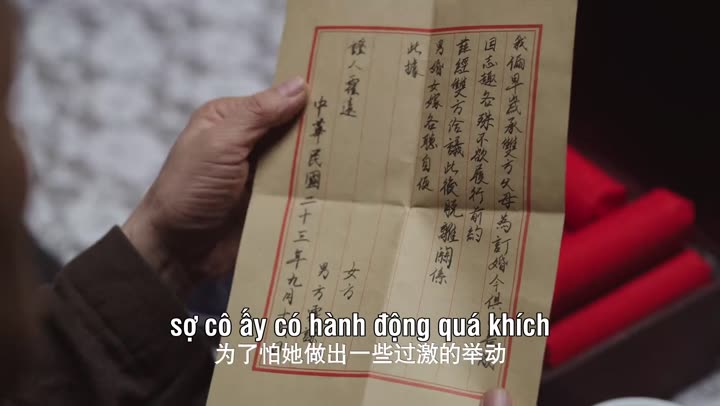 我倆早歲承雙方父母為訂婚今俱
因志趣各殊不欲履行前約
茲經雙方洽議此後脫離關係
男婚女嫁各聽自便
此據
證人霍遠
女方
男方
中華民國二十三年九月
sợ cô ấy có hành động quá khích
为了怕她做出一些过激的举动